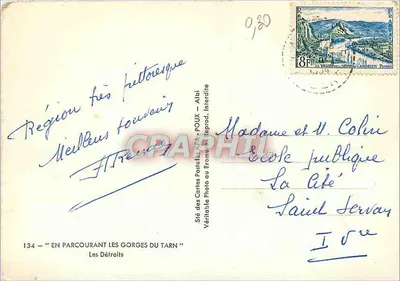 0,20
8F
Région très pittoresque
Meilleurs souvenirs
134 - " EN PARCOURANT LES GORGES DU TARN "
Les Détroits
Sté des Cartes Postales APA - POUX - Albi
Véritable Photo au Bromure Reprod. Interdite
CARAPHIL
Madame et M. Colin
Ecole publique
La Cité
Saint Servan
I Vre